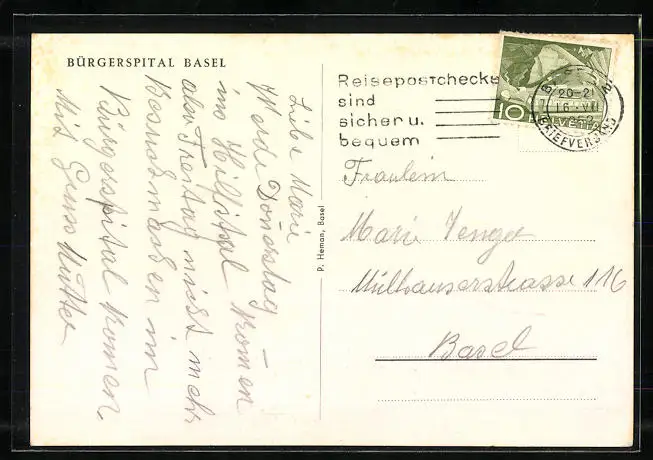 BÜRGERSPITAL BASEL
Liebe Marie
Werde Donerstag
ins Hilfsital komen
aber Freitag nicht mehr
Besuchmachen im
Bürgerspital komen,
Mit Gruss Mutter
P. Heman, Basel
Reisepostchecks
sind
sicher u.
bequem
20-21
16. VII
BRIEFVERSAND
10
HELVETIA
Fraulein
Marie Jenger
Mülhauserstrasse 116
Basel